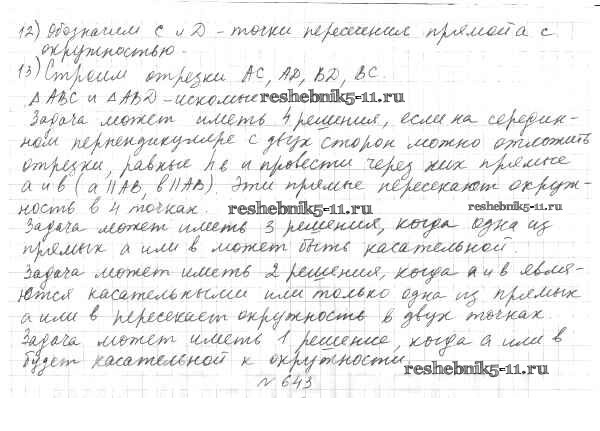 12) Обозначим С и D - точки пересечения прямой а с
окружностью.
13) Строим отрезки АС, АD, ВD, ВС.
△АВС и △АВD - искомые reshebnik5-11.ru
Задача может иметь 4 решения, если на середин-
ном перпендикуляре с двух сторон можно отложить
отрезки, равные hс и провести через них прямые
а и в (а || АВ, в || АВ). Эти прямые пересекают окруж-
ность в 4 точках. reshebnik5-11.ru reshebnik5-11.ru
Задача может иметь 3 решения, когда одна из
прямых а или в может быть касательной.
Задача может иметь 2 решения, когда а и в явля-
ются касательными или только одна из прямых
а или в пересекает окружность в двух точках.
Задача может иметь 1 решение, когда а или в
будет касательной к окружности. reshebnik5-11.ru
№ 643